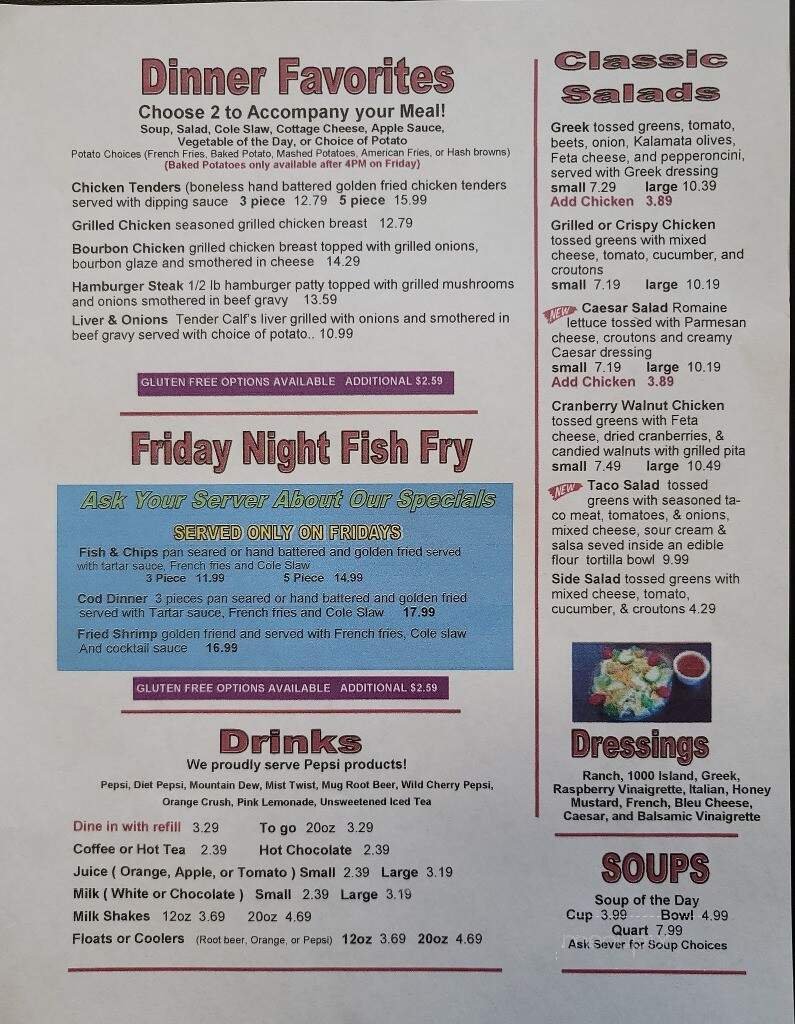 Dinner Favorites
Choose 2 to Accompany your Meal!
Soup, Salad, Cole Slaw, Cottage Cheese, Apple Sauce,
Vegetable of the Day, or Choice of Potato
Potato Choices (French Fries, Baked Potato, Mashed Potatoes, American Fries, or Hash browns)
(Baked Potatoes only available after 4PM on Friday)
Chicken Tenders (boneless hand battered golden fried chicken tenders
served with dipping sauce 3 piece 12.79 5 piece 15.99
Grilled Chicken seasoned grilled chicken breast 12.79
Bourbon Chicken grilled chicken breast topped with grilled onions,
bourbon glaze and smothered in cheese 14.29
Hamburger Steak 1/2 lb hamburger patty topped with grilled mushrooms
and onions smothered in beef gravy 13.59
Liver & Onions Tender Calf's liver grilled with onions and smothered in
beef gravy served with choice of potato.. 10.99
GLUTEN FREE OPTIONS AVAILABLE ADDITIONAL $2.59
Friday Night Fish Fry
Ask Your Server About Our Specials
SERVED ONLY ON FRIDAYS
Fish & Chips pan seared or hand battered and golden fried served
with tartar sauce, French fries and Cole Slaw
3 Piece 11.99 5 Piece 14.99
Cod Dinner 3 pieces pan seared or hand battered and golden fried
served with Tartar sauce, French fries and Cole Slaw 17.99
Fried Shrimp golden friend and served with French fries, Cole slaw
And cocktail sauce 16.99
GLUTEN FREE OPTIONS AVAILABLE ADDITIONAL $2.59
Drinks
We proudly serve Pepsi products!
Pepsi, Diet Pepsi, Mountain Dew, Mist Twist, Mug Root Beer, Wild Cherry Pepsi,
Orange Crush, Pink Lemonade, Unsweetened Iced Tea
Dine in with refill 3.29 To go 20oz 3.29
Coffee or Hot Tea 2.39 Hot Chocolate 2.39
Juice ( Orange, Apple, or Tomato ) Small 2.39 Large 3.19
Milk ( White or Chocolate ) Small 2.39 Large 3.19
Milk Shakes 12oz 3.69 20oz 4.69
Floats or Coolers (Root beer, Orange, or Pepsi) 12oz 3.69 20oz 4.69
Classic
Salads
Greek tossed greens, tomato,
beets, onion, Kalamata olives,
Feta cheese, and pepperoncini,
served with Greek dressing
small 7.29 large 10.39
Add Chicken 3.89
Grilled or Crispy Chicken
tossed greens with mixed
cheese, tomato, cucumber, and
croutons
small 7.19 large 10.19
NEW Caesar Salad Romaine
lettuce tossed with Parmesan
cheese, croutons and creamy
Caesar dressing
small 7.19 large 10.19
Add Chicken 3.89
Cranberry Walnut Chicken
tossed greens with Feta
cheese, dried cranberries, &
candied walnuts with grilled pita
small 7.49 large 10.49
NEW Taco Salad tossed
greens with seasoned ta-
co meat, tomatoes, & onions,
mixed cheese, sour cream &
salsa seved inside an edible
flour tortilla bowl 9.99
Side Salad tossed greens with
mixed cheese, tomato,
cucumber, & croutons 4.29
Dressings
Ranch, 1000 Island, Greek,
Raspberry Vinaigrette, Italian, Honey
Mustard, French, Bleu Cheese,
Caesar, and Balsamic Vinaigrette
SOUPS
Soup of the Day
Cup 3.99 Bowl 4.99
Quart 7.99
Ask Sever for Soup Choices